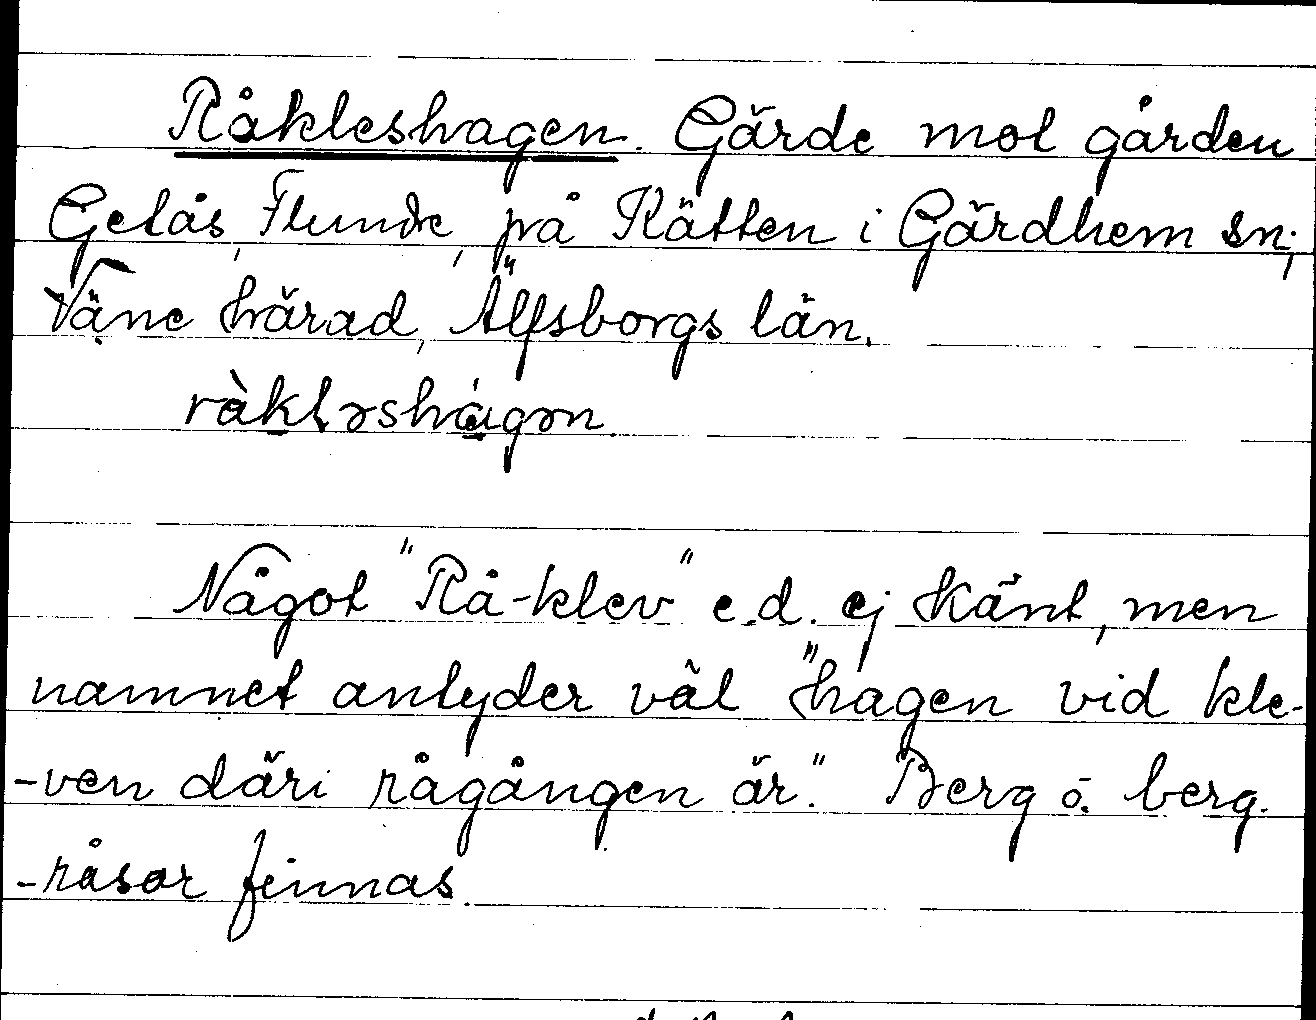 Råkleshagen. Gärde mot gården
Getås, Flundre, på Rätten i Gärdhem sn;
Väne härad, Älfsborgs län.
ràklǝshágǝn
Något "Rå-klev" e.d. ej känt, men
namnet antyder väl "hagen vid kle-
-ven däri rågången är." Berg o. berg-
-råsor finnas.